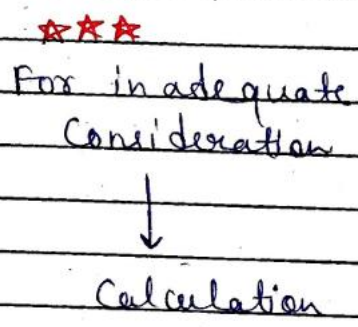 For inadequate
Consideration
Calculation